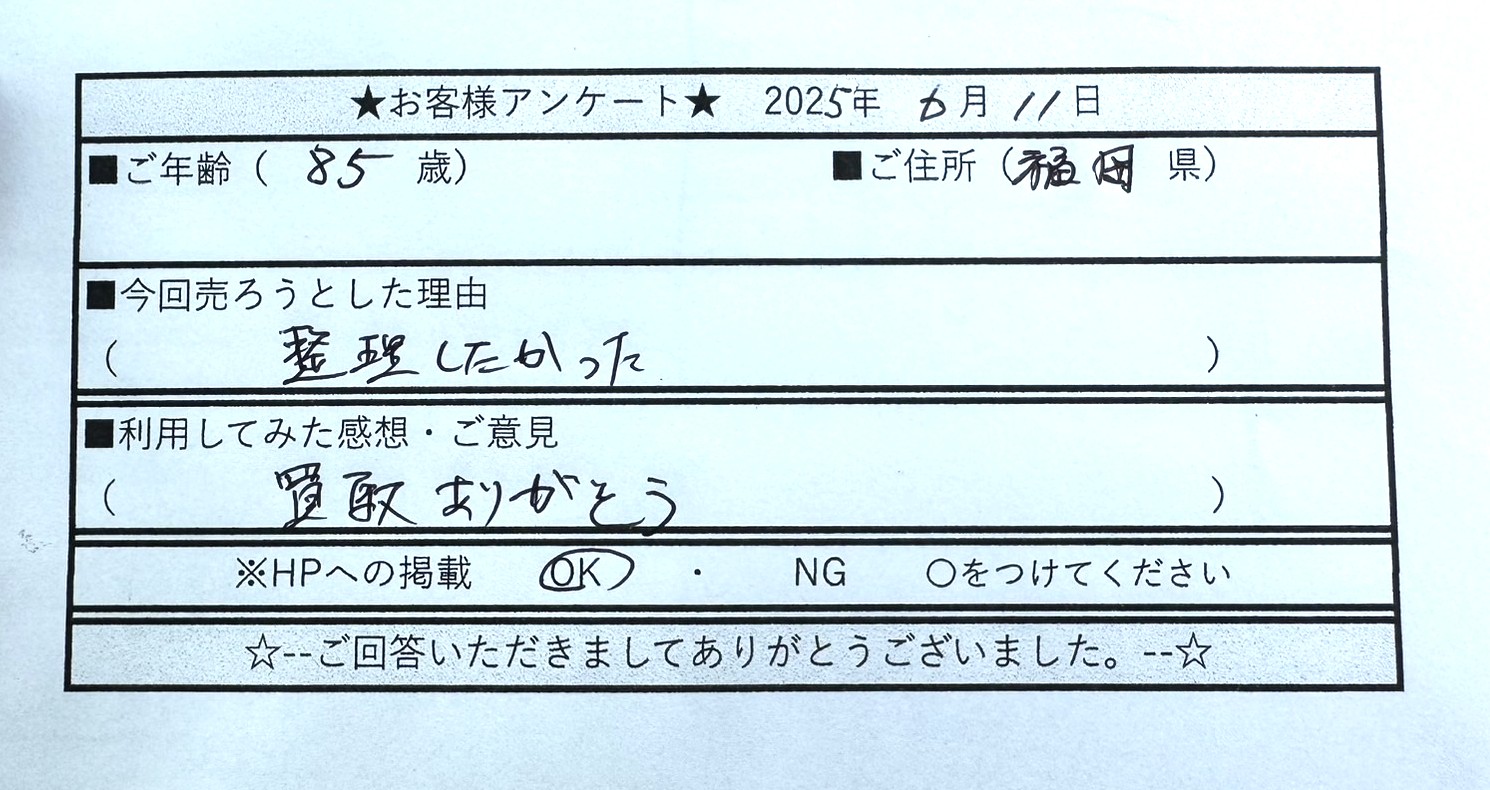 ★お客様アンケート★ 2025年 6月 11日
■ご年齢（ 85 歳） ■ご住所（福岡 県）
■今回売ろうとした理由
（ 整理したかった ）
■利用してみた感想・ご意見
（ 買取ありがとう ）
※HPへの掲載 OK ・ NG ○をつけてください
☆--ご回答いただきましてありがとうございました。--☆